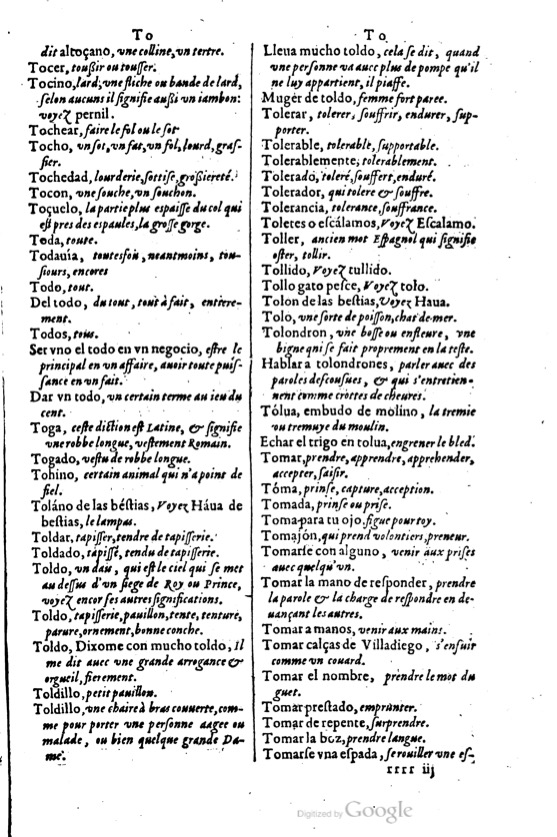 To
dit altoçano, vne colline, vn tertre.
Tocer, toußir ou tousser.
Tocino, lard, vne fliche ou bande de lard,
selon aucuns il signifie außi vn iambon:
voyez pernil.
Tochear, faire le fol ou le sot
Tocho, vn sot, vn fat, vn fol, lourd, gros-
sier.
Tochedad, lourderie, sottise, großiereté.
Tocon, vne souche, vn souchon.
Toçuelo, la partie plus espaisse du col qui
est pres des espaules, la grosse gorge.
Toda, toute.
Todauia, toutesfois, neantmoins, tou-
siours, encores
Todo, tout.
Del todo, du tout, tout à fait, entiere-
ment.
Todos, tous.
Ser vno el todo en vn negocio, estre le
principal en vn affaire, auoir toute puis-
sance en vn fait.
Dar vn todo, vn certain terme au ieu du
cent.
Toga, ceste diction est Latine, & signifie
vne robbe longue, vestement Romain.
Togado, vestu de robbe longue.
Tohino, certain animal qui n'a point de
fiel.
Toláno de las béstias, Voyez Háua de
bestias, le lampas.
Toldar, tapisser, tendre de tapisserie.
Toldado, tapissé, tendu de tapisserie.
Toldo, vn dau, qui est le ciel qui se met
au dessus d'vn siege de Roy ou Prince,
voyez encor ses autres significations.
Toldo, tapisserie, pauillon, tente, tenture,
parure, ornement, bonne conche.
Toldo, Dixome con mucho toldo, Il
me dit auec vne grande arrogance &
orgueil, fierement.
Toldillo, petit pauillon.
Toldillo, vne chaire à bras couuerte, com-
me pour porter vne personne aagee ou
malade, ou bien quelque grande Da-
me.
To
Lleua mucho toldo, cela se dit, quand
vne personne va auec plus de pompe qu'il
ne luy appartient, il piaffe.
Muger de toldo, femme fort paree.
Tolerar, tolerer, souffrir, endurer, sup-
porter.
Tolerable, tolerable, supportable.
Tolerablemente, tolerablement.
Tolerado, toleré, souffert, enduré.
Tolerador, qui tolere & souffre.
Tolerancia, tolerance, souffrance.
Toleres o escálamos, Voyez Escalamo.
Toller, ancien mot Espagnol qui signifie
oster, tollir.
Tollido, Voyez tullido.
Tollo gato pesce, Voyez tolo.
Tolon de las bestias, Voyez Haua.
Tolo, vne sorte de poisson, chat de mer.
Tolondron, vne bosse ou enfleure, vne
bigne qui se fait proprement en la teste.
Hablar a tolondrones, parler auec des
paroles descousues, & qui s'entretien-
nent comme crottes de cheures.
Tólua, embudo de molino, la tremie
ou tremuye du moulin.
Echar el trigo en tolua, engrener le bled.
Tomar, prendre, apprendre, apprehender,
accepter, saisir.
Tóma, prinse, capture, acception.
Tomada, prinse ou prise.
Toma para tu ojo, figue pour toy.
Tomajón, qui prend volontiers, preneur.
Tomarse con alguno, venir aux prises
auec quelqu'vn.
Tomar la mano de responder, prendre
la parole & la charge de respondre en de-
uançant les autres.
Tomar a manos, venir aux mains.
Tomar calças de Villadiego, s'enfuir
comme vn couard.
Tomar el nombre, prendre le mot du
guet.
Tomar prestado, emprunter.
Tomar de repente, surprendre.
Tomar la boz, prendre langue.
Tomarse vna espada, se rouiller vne es-
rrrr iij
Digitized by Google